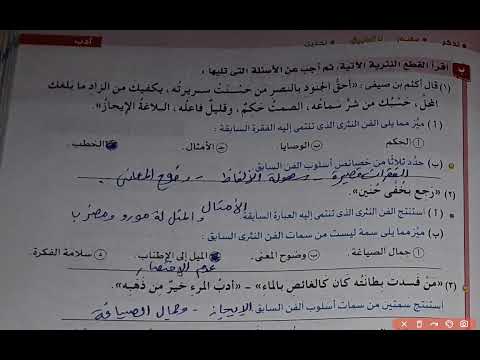 تذكر • فهم • تطبيق • تحليل
أدب
ب اقرأ القطع النثرية الآتية، ثم أجب عن الأسئلة التى تليها :
(١) قال أكثم بن صيفى : «أحقُّ الجنود بالنصر من حَسُنَتْ سريرتُه، يكفيك من الزاد ما بلغك
المحلّ، حَسْبُك من شرٍّ سَمَاعُه، الصمتُ حُكمٌ، وقليلٌ فاعلُه، البلاغةُ الإيجازُ».
(أ) ميّز مما يلى الفن النثرى الذى تنتمى إليه الفقرة السابقة :
أ الحكم. ب الوصايا ج الأمثال. الخطب.
(ب) حدّد ثلاثًا من خصائص أسلوب الفن السابق.
الفقرات قصيرة - سهولة الألفاظ - وضوح المعانى
(٢) «رجع بخُفَّى حُنين».
(أ) استنتج الفن النثرى الذى تنتمى إليه العبارة السابقة. الأمثال والمثل له مورد ومضرب
(ب) ميّز مما يلى سمة ليست من سمات الفن السابق :
أ جمال الصياغة. ب وضوح المعنى. الميل إلى الإطناب. د سلامة الفكرة.
(٣) «مَنْ فسدت بطانتُه كان كالغائص بالماءِ» – «أدبُ المرءِ خيرٌ من ذَهَبِه».
استنتج سمتين من سمات أسلوب الفن السابق. الإيجاز - وجمال الصياغة